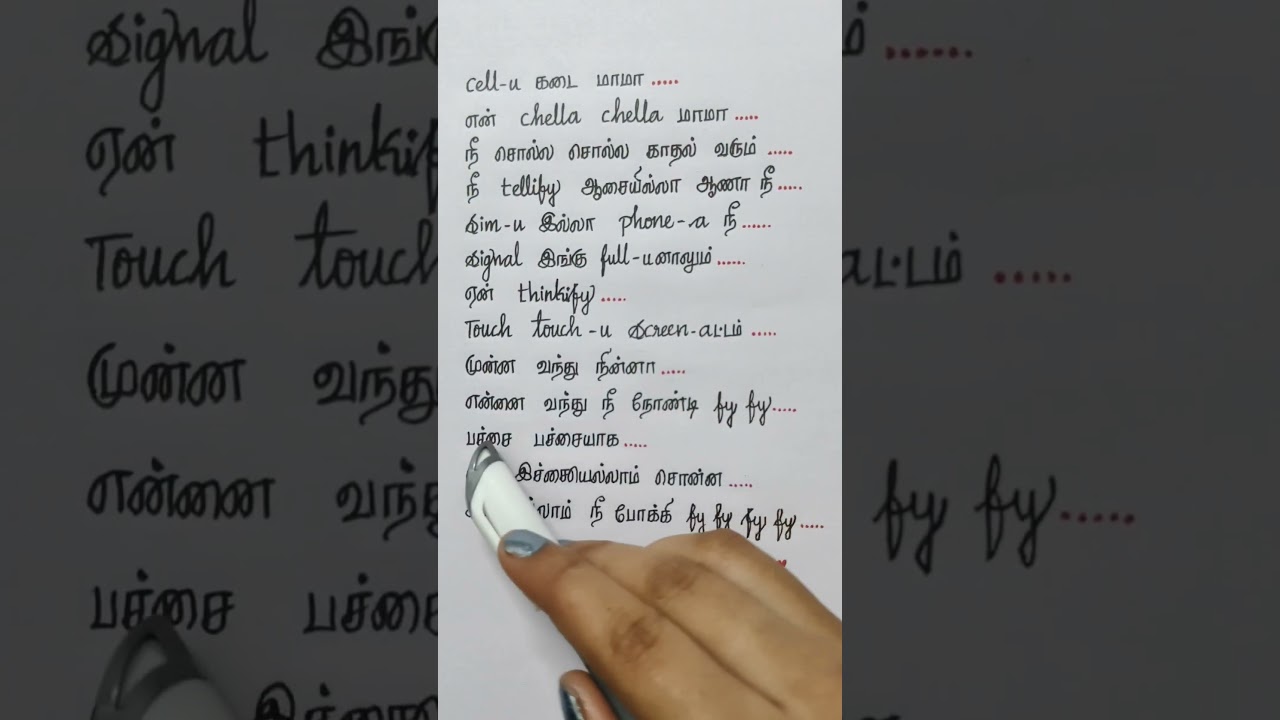 cell-u கடை மாமா .....
என் chella chella மாமா .....
நீ சொல்ல சொல்ல காதல் வரும் .....
நீ tellify ஆசையில்லா ஆணா நீ .....
Sim-u இல்லா phone-a நீ ......
Signal இங்கு full-uனாலும் ......
ஏன் thinkify .....
Touch touch-u Screen-aட்டம் .....
முன்ன வந்து நின்னா .....
என்னை வந்து நீ நோண்டி fy fy .....
பச்சை பச்சையாக .....
இச்சையெல்லாம் சொன்ன .....
நீ போக்கி fy fy fy fy .....